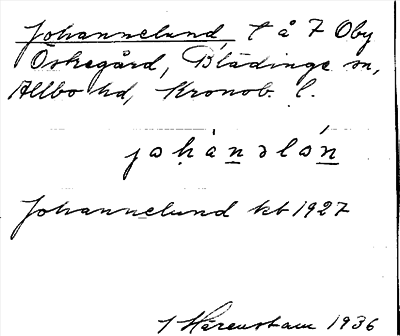 Johannelund, t å 7 Oby
Oskegård, Blädinge sn,
Allbo hd, Kronob. l.
johànəlón
Johannelund kb 1927
Härenstam 1936